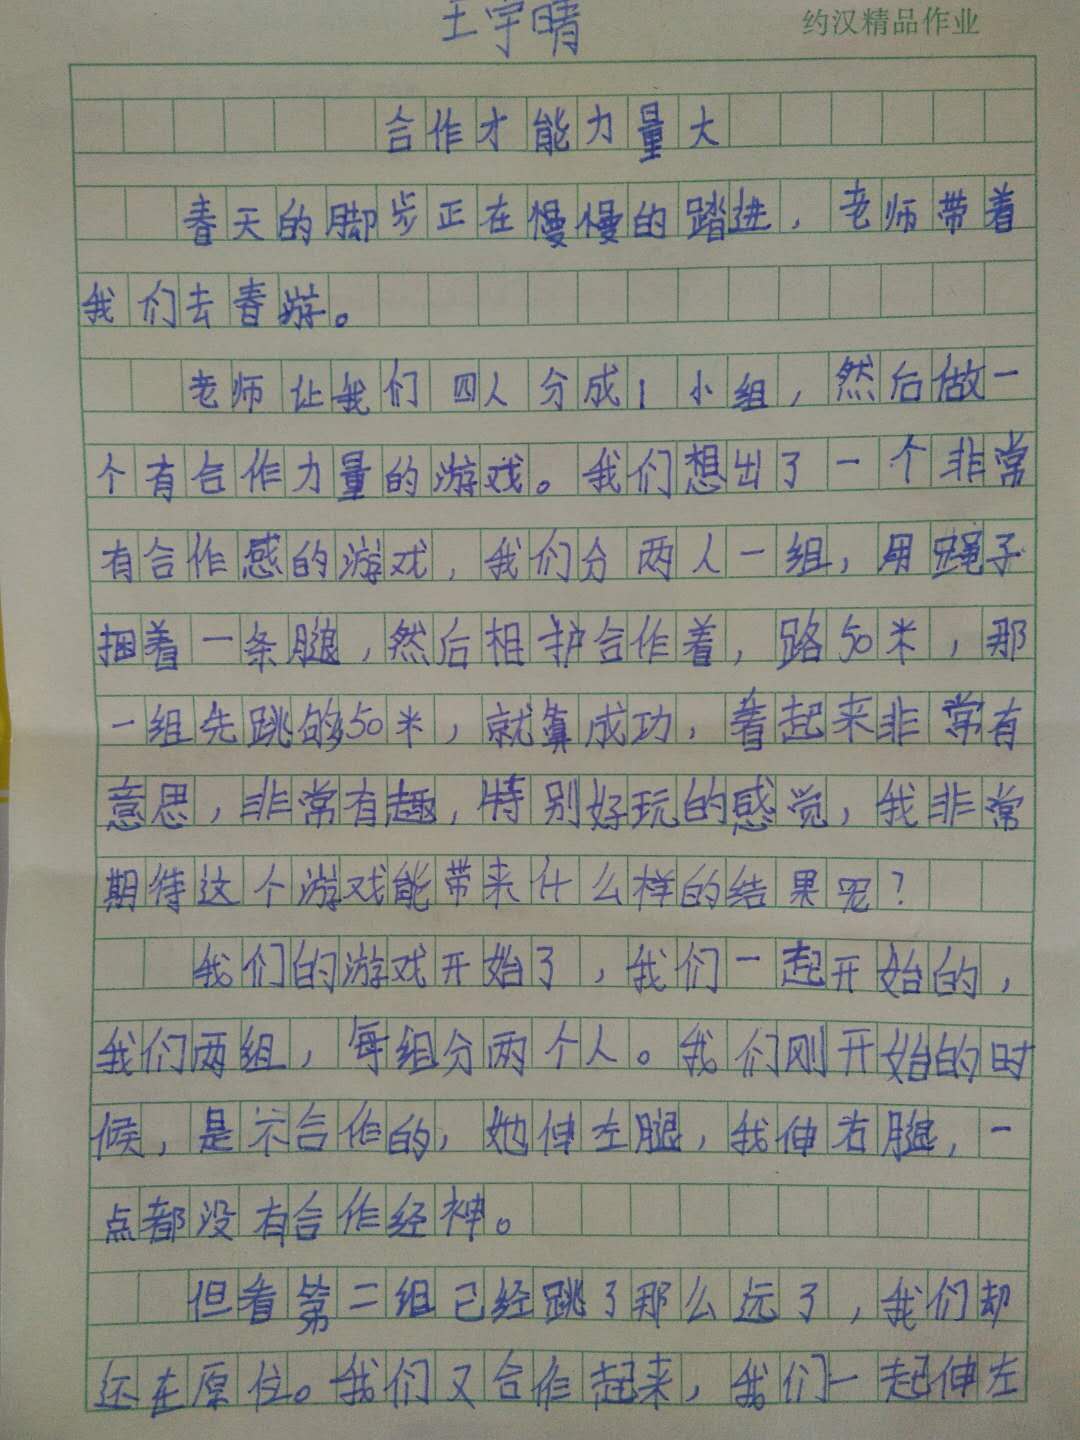 王宇晴
约汉精品作业
合作才能力量大
春天的脚步正在慢慢的踏进，老师带着
我们去春游。
老师让我们四人分成1小组，然后做一
个有合作力量的游戏。我们想出了一个非常
有合作感的游戏，我们分两人一组，用绳子
捆着一条腿，然后相护合作着，路50米，那
一组先跳够50米，就算成功，看起来非常有
意思，非常有趣，特别好玩的感觉，我非常
期待这个游戏能带来什么样的结果呢？
我们的游戏开始了，我们一起开始的，
我们两组，每组分两个人。我们刚开始的时
候，是不合作的，她伸左腿，我伸右腿，一
点都没有合作经神。
但看第二组已经跳了那么远了，我们却
还在原位。我们又合作起来，我们一起伸左